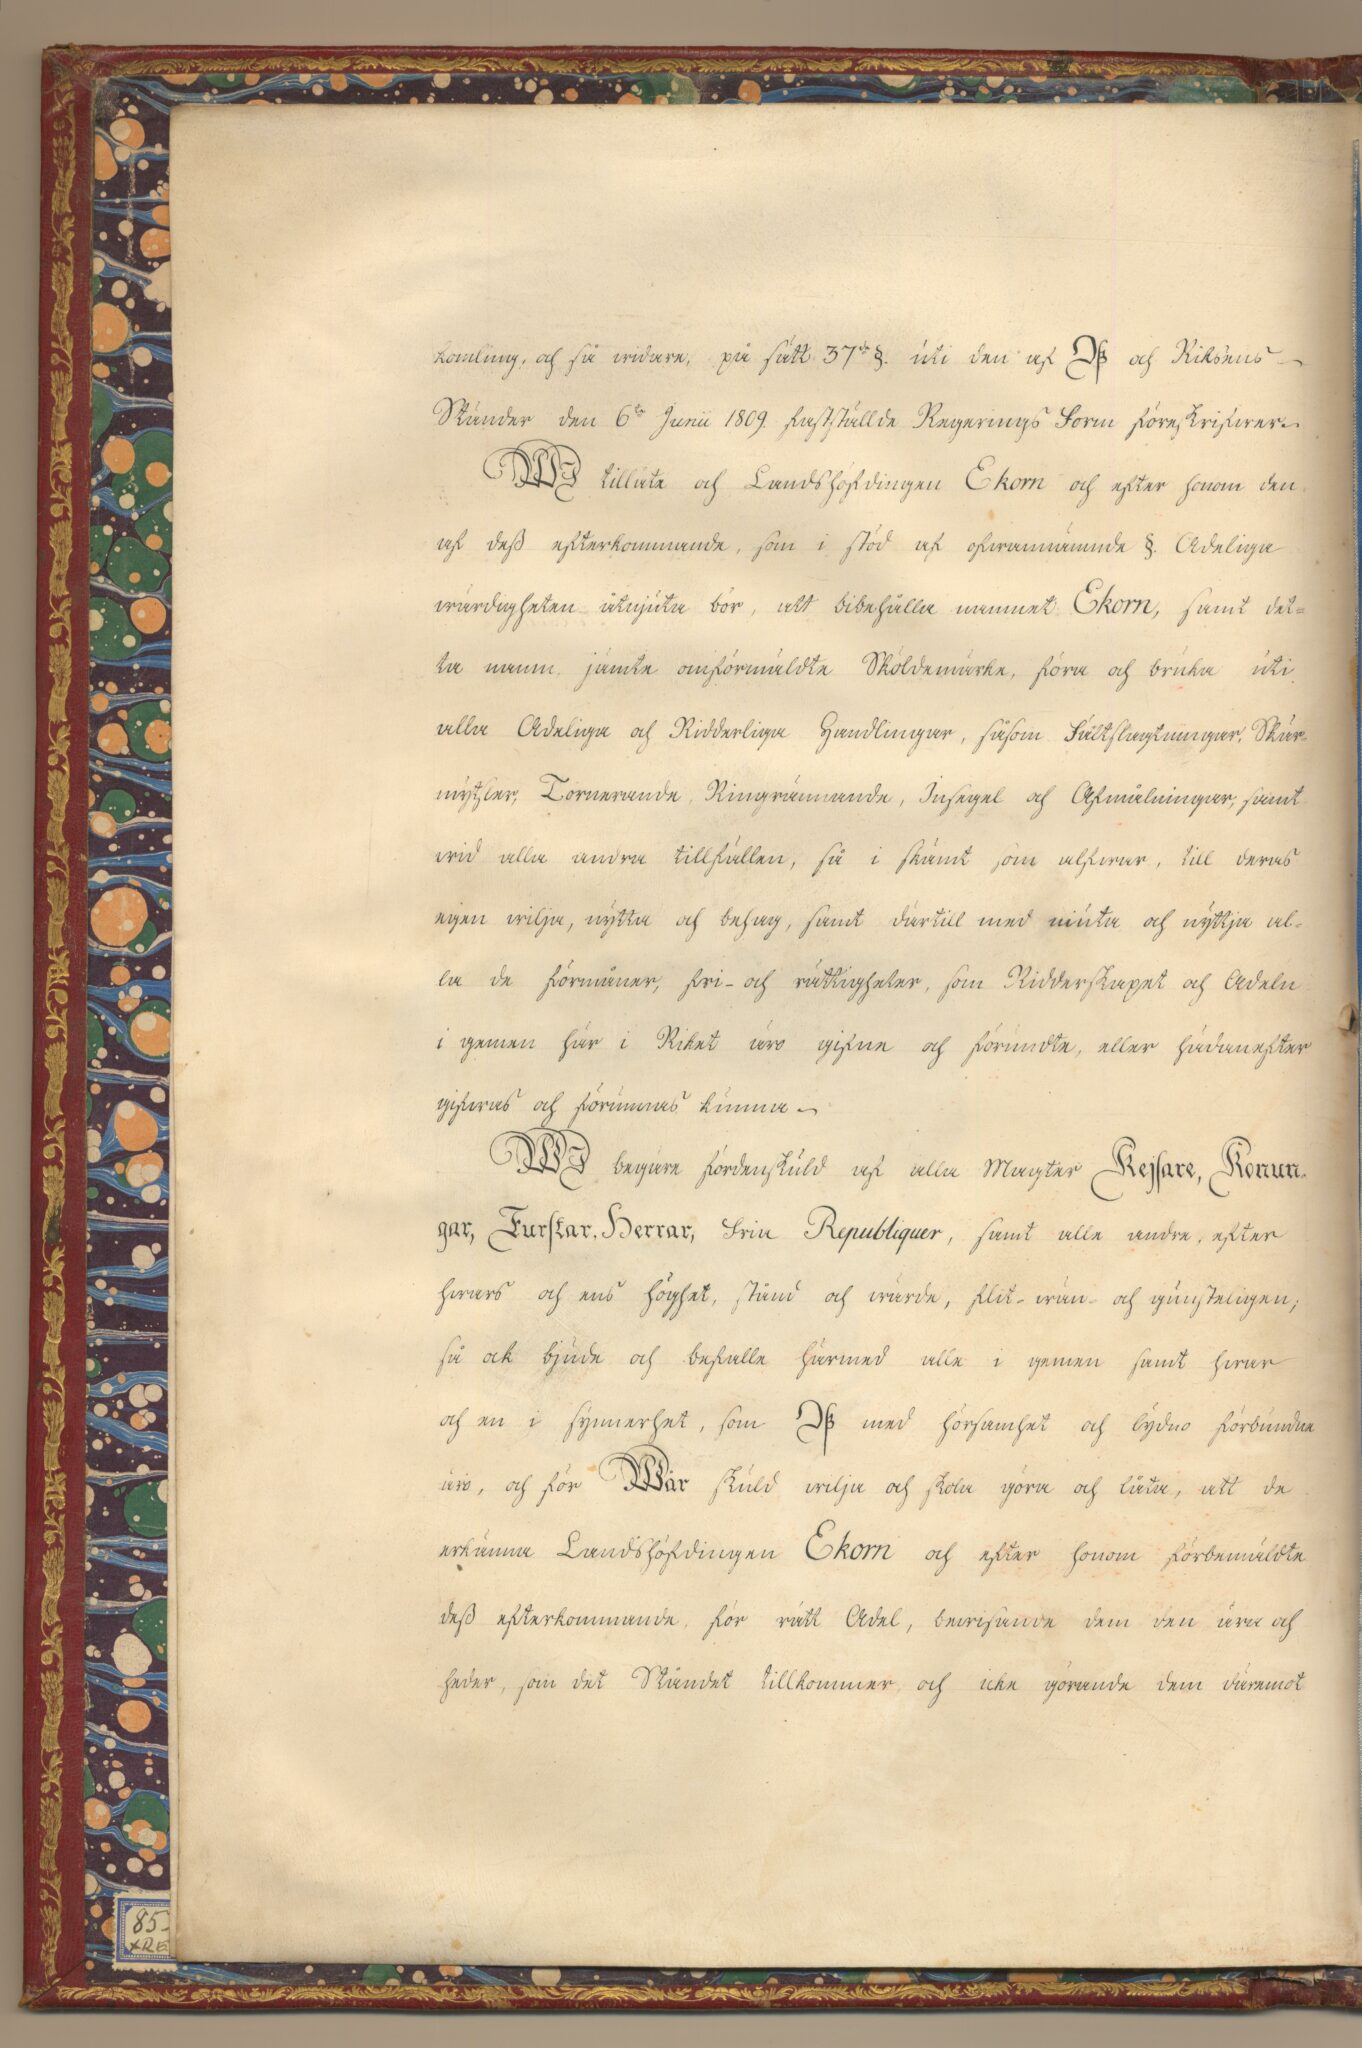 komling, och så widare, på sätt 37de §. uti den af Oß och Riksens
Ständer den 6te Junii 1809 fastställde Regerings Form föreskrifwer.
WI tillåte och Landshöfdingen Ekorn och efter honom den
af deß efterkommande, som i stöd af ofwannämnde §. Adeliga
wärdigheten åtnjuta bör, att bibehålla namnet Ekorn, samt det=
ta namn jämte omförmäldte Sköldemärke, föra och bruka uti
alla Adeliga och Ridderliga Handlingar, såsom Fältslagtningar, Skär-
mytsler, Tornerande, Ringrännande, Insegel och Afmålningar, samt
wid alla andra tillfällen, så i skämt som alfwar, till deras
egen wilja, nytta och behag, samt därtill med niuta och nyttja al-
la de förmåner, fri- och rättigheter, som Ridderskapet och Adeln
i gemen här i Riket äro gifne och förundte, eller hädanefter
gifwas och förunnas kunna.
WI begäre fördenskuld af alla Magter Kejsare, Konun-
gar, Furstar, Herrar, Fria Republiquer, samt alle andre, efter
hwars och ens höghet, stånd och wärde, flit- wän- och gunsteligen;
så ock bjude och befalle härmed alle i gemen samt hwar
och en i synnerhet, som Oß med hörsamhet och lydno förbundne
äro, och för Wår skuld wilja och skola göra och låta, att de
erkänna Landshöfdingen Ekorn och efter honom förbemäldte
deß efterkommande för rätt Adel, bewisande dem den ära och
heder, som det Ståndet tillkommer och icke görande dem däremot
85